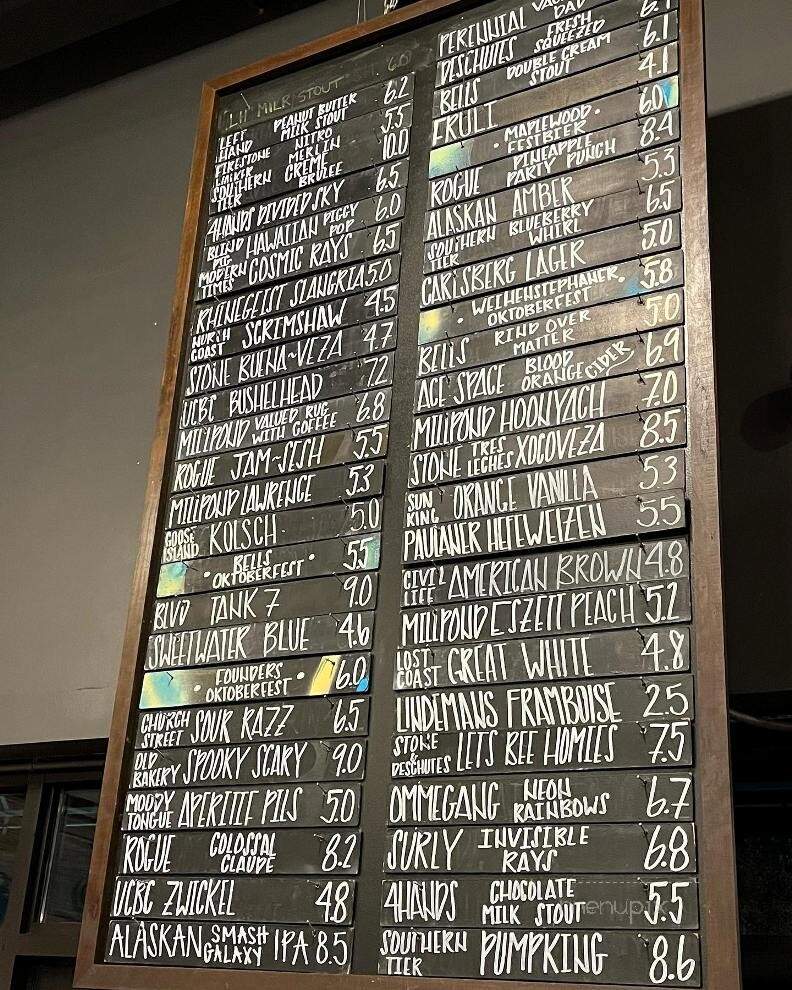 LIL' MILK STOUT 6.0
LEFT HAND PEANUT BUTTER MILK STOUT 6.2
FIRESTONE WALKER NITRO MERLIN 5.5
SOUTHERN TIER CREME BRULEE 10.0
4HANDS DIVIDED SKY 6.5
BLIND PIG HAWAIIAN PIGGY POP 6.0
MODERN TIMES COSMIC RAYS 6.5
RHINEGEIST SLANGRIA 5.0
NORTH COAST SCRIMSHAW 4.5
STONE BUENA~VEZA 4.7
UCBC BUSHELHEAD 7.2
MILLPOND VALUED RUG WITH COFFEE 6.8
ROGUE JAM~SESH 5.5
MILLPOND LAWRENCE 5.3
GOOSE ISLAND KOLSCH 5.0
• BELLS OKTOBERFEST • 5.5
BLVD TANK 7 9.0
SWEETWATER BLUE 4.6
• FOUNDERS OKTOBERFEST • 6.0
CHURCH STREET SOUR RAZZ 6.5
OLD BAKERY SPOOKY SCARY 9.0
MOODY TONGUE APERITIF PILS 5.0
ROGUE COLOSSAL CLAUDE 8.2
UCBC ZWICKEL 4.8
ALASKAN SMASH GALAXY IPA 8.5
PERENNIAL DAD 6.1
DESCHUTES FRESH SQUEEZED 6.1
BELLS DOUBLE CREAM STOUT 4.1
FRULI
• MAPLEWOOD • FESTBIER 6.0
ROGUE PINEAPPLE PARTY PUNCH 8.4
ALASKAN AMBER 5.3
SOUTHERN TIER BLUEBERRY WHIRL 6.5
CARLSBERG LAGER 5.0
• WEIHENSTEPHANER • OKTOBERFEST 5.8
BELLS RIND OVER MATTER 5.0
ACE SPACE BLOOD ORANGE CIDER 6.9
MILLPOND HOONYACH 7.0
STONE TRES LECHES XOCOVEZA 8.5
SUN KING ORANGE VANILLA 5.3
PAULANER HEFEWEIZEN 5.5
CIVIL LIFE AMERICAN BROWN 4.8
MILLPOND ESZETT PEACH 5.2
LOST COAST GREAT WHITE 4.8
LINDEMANS FRAMBOISE 2.5
STONE & DESCHUTES LETS BEE HOMIES 7.5
OMMEGANG NEON RAINBOWS 6.7
SURLY INVISIBLE RAYS 6.8
4HANDS CHOCOLATE MILK STOUT 5.5
SOUTHERN TIER PUMPKING 8.6